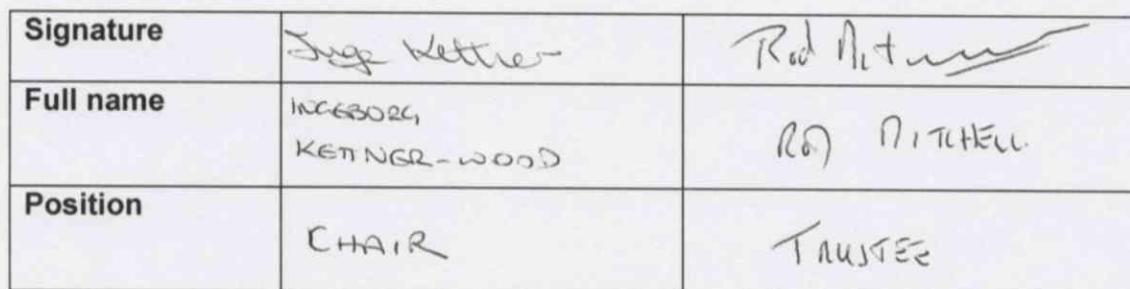 Signature Inge Kettner Rod Mit
Full name INGEBORG
KETTNER-WOOD ROD MITCHELL
Position CHAIR TRUSTEE